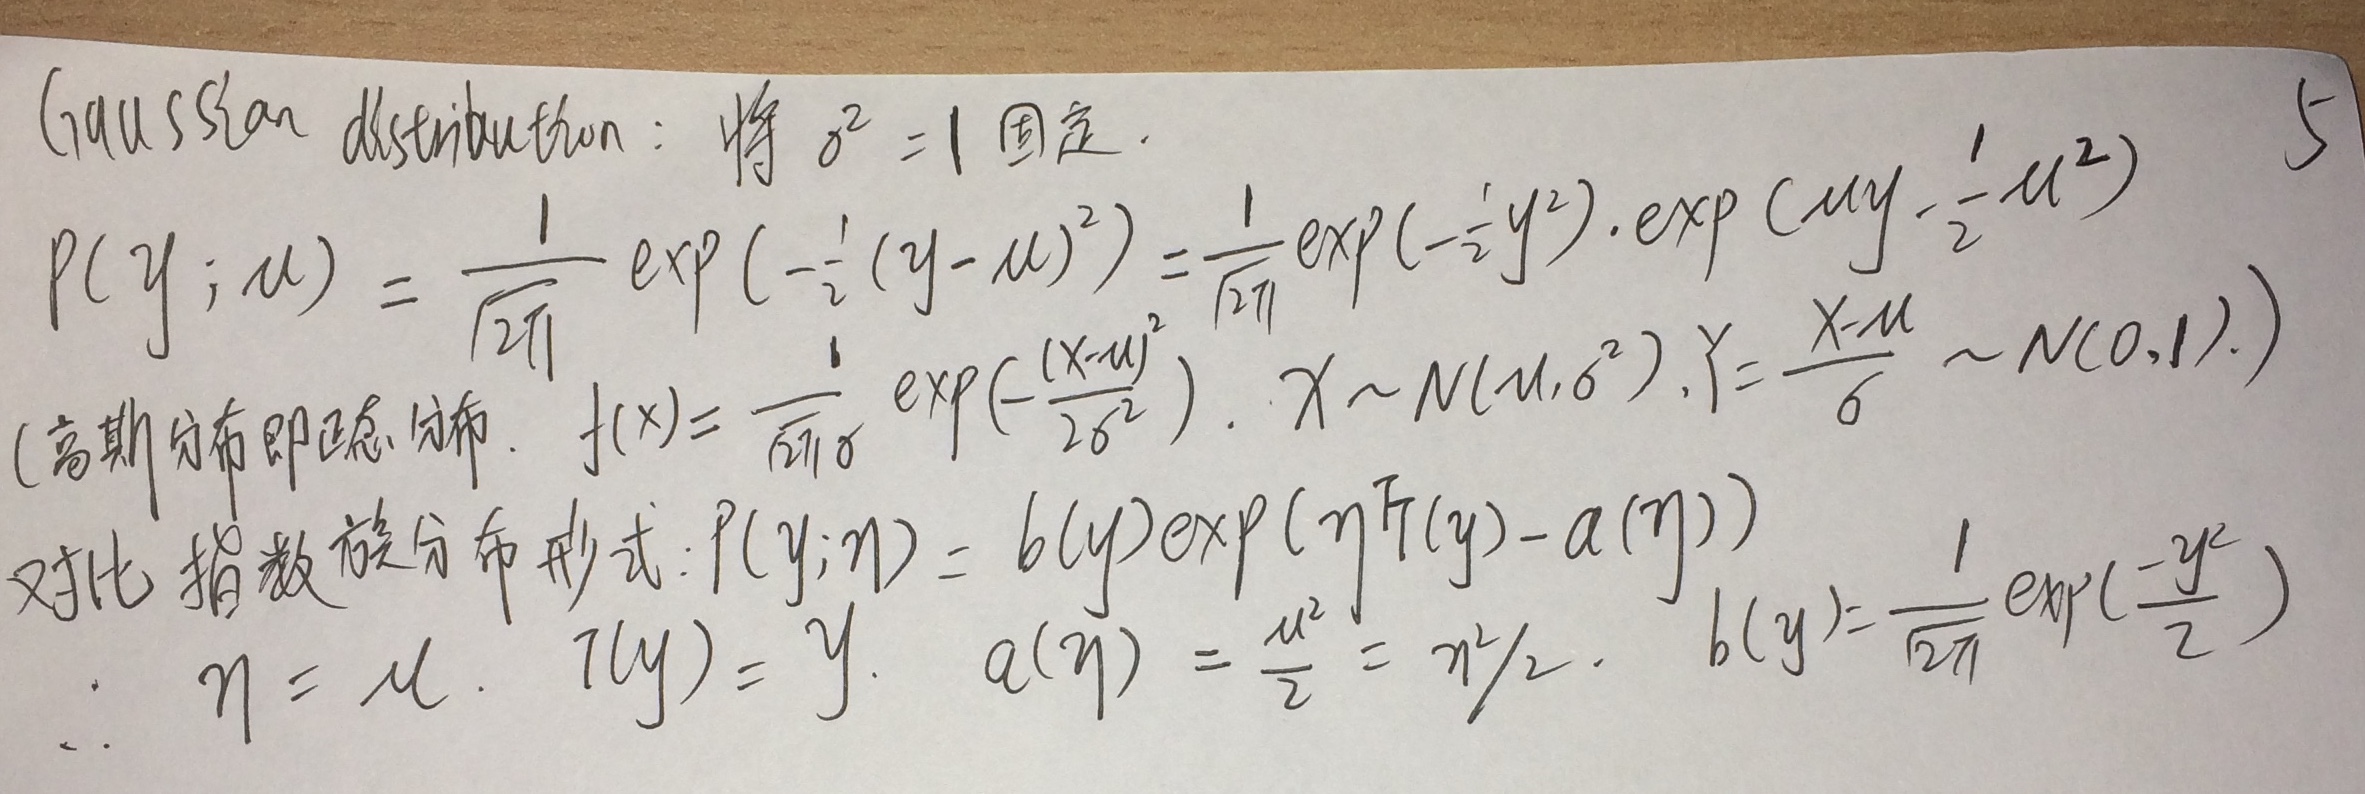 Gaussian distribution: 将 σ² = 1 固定. 5
P(y; μ) = 1/√2π exp(-1/2(y-μ)²) = 1/√2π exp(-1/2y²)·exp(μy-1/2μ²)
(高斯分布即正态分布. f(x) = 1/√2πσ exp(-(x-μ)²/2σ²). X~N(μ,σ²). Y = X-μ/σ ~ N(0,1).)
对比指数族分布形式: P(y;η) = b(y)exp(ηᵀT(y)-a(η))
∴ η = μ. T(y) = y. a(η) = μ²/2 = η²/2. b(y) = 1/√2π exp(-y²/2)